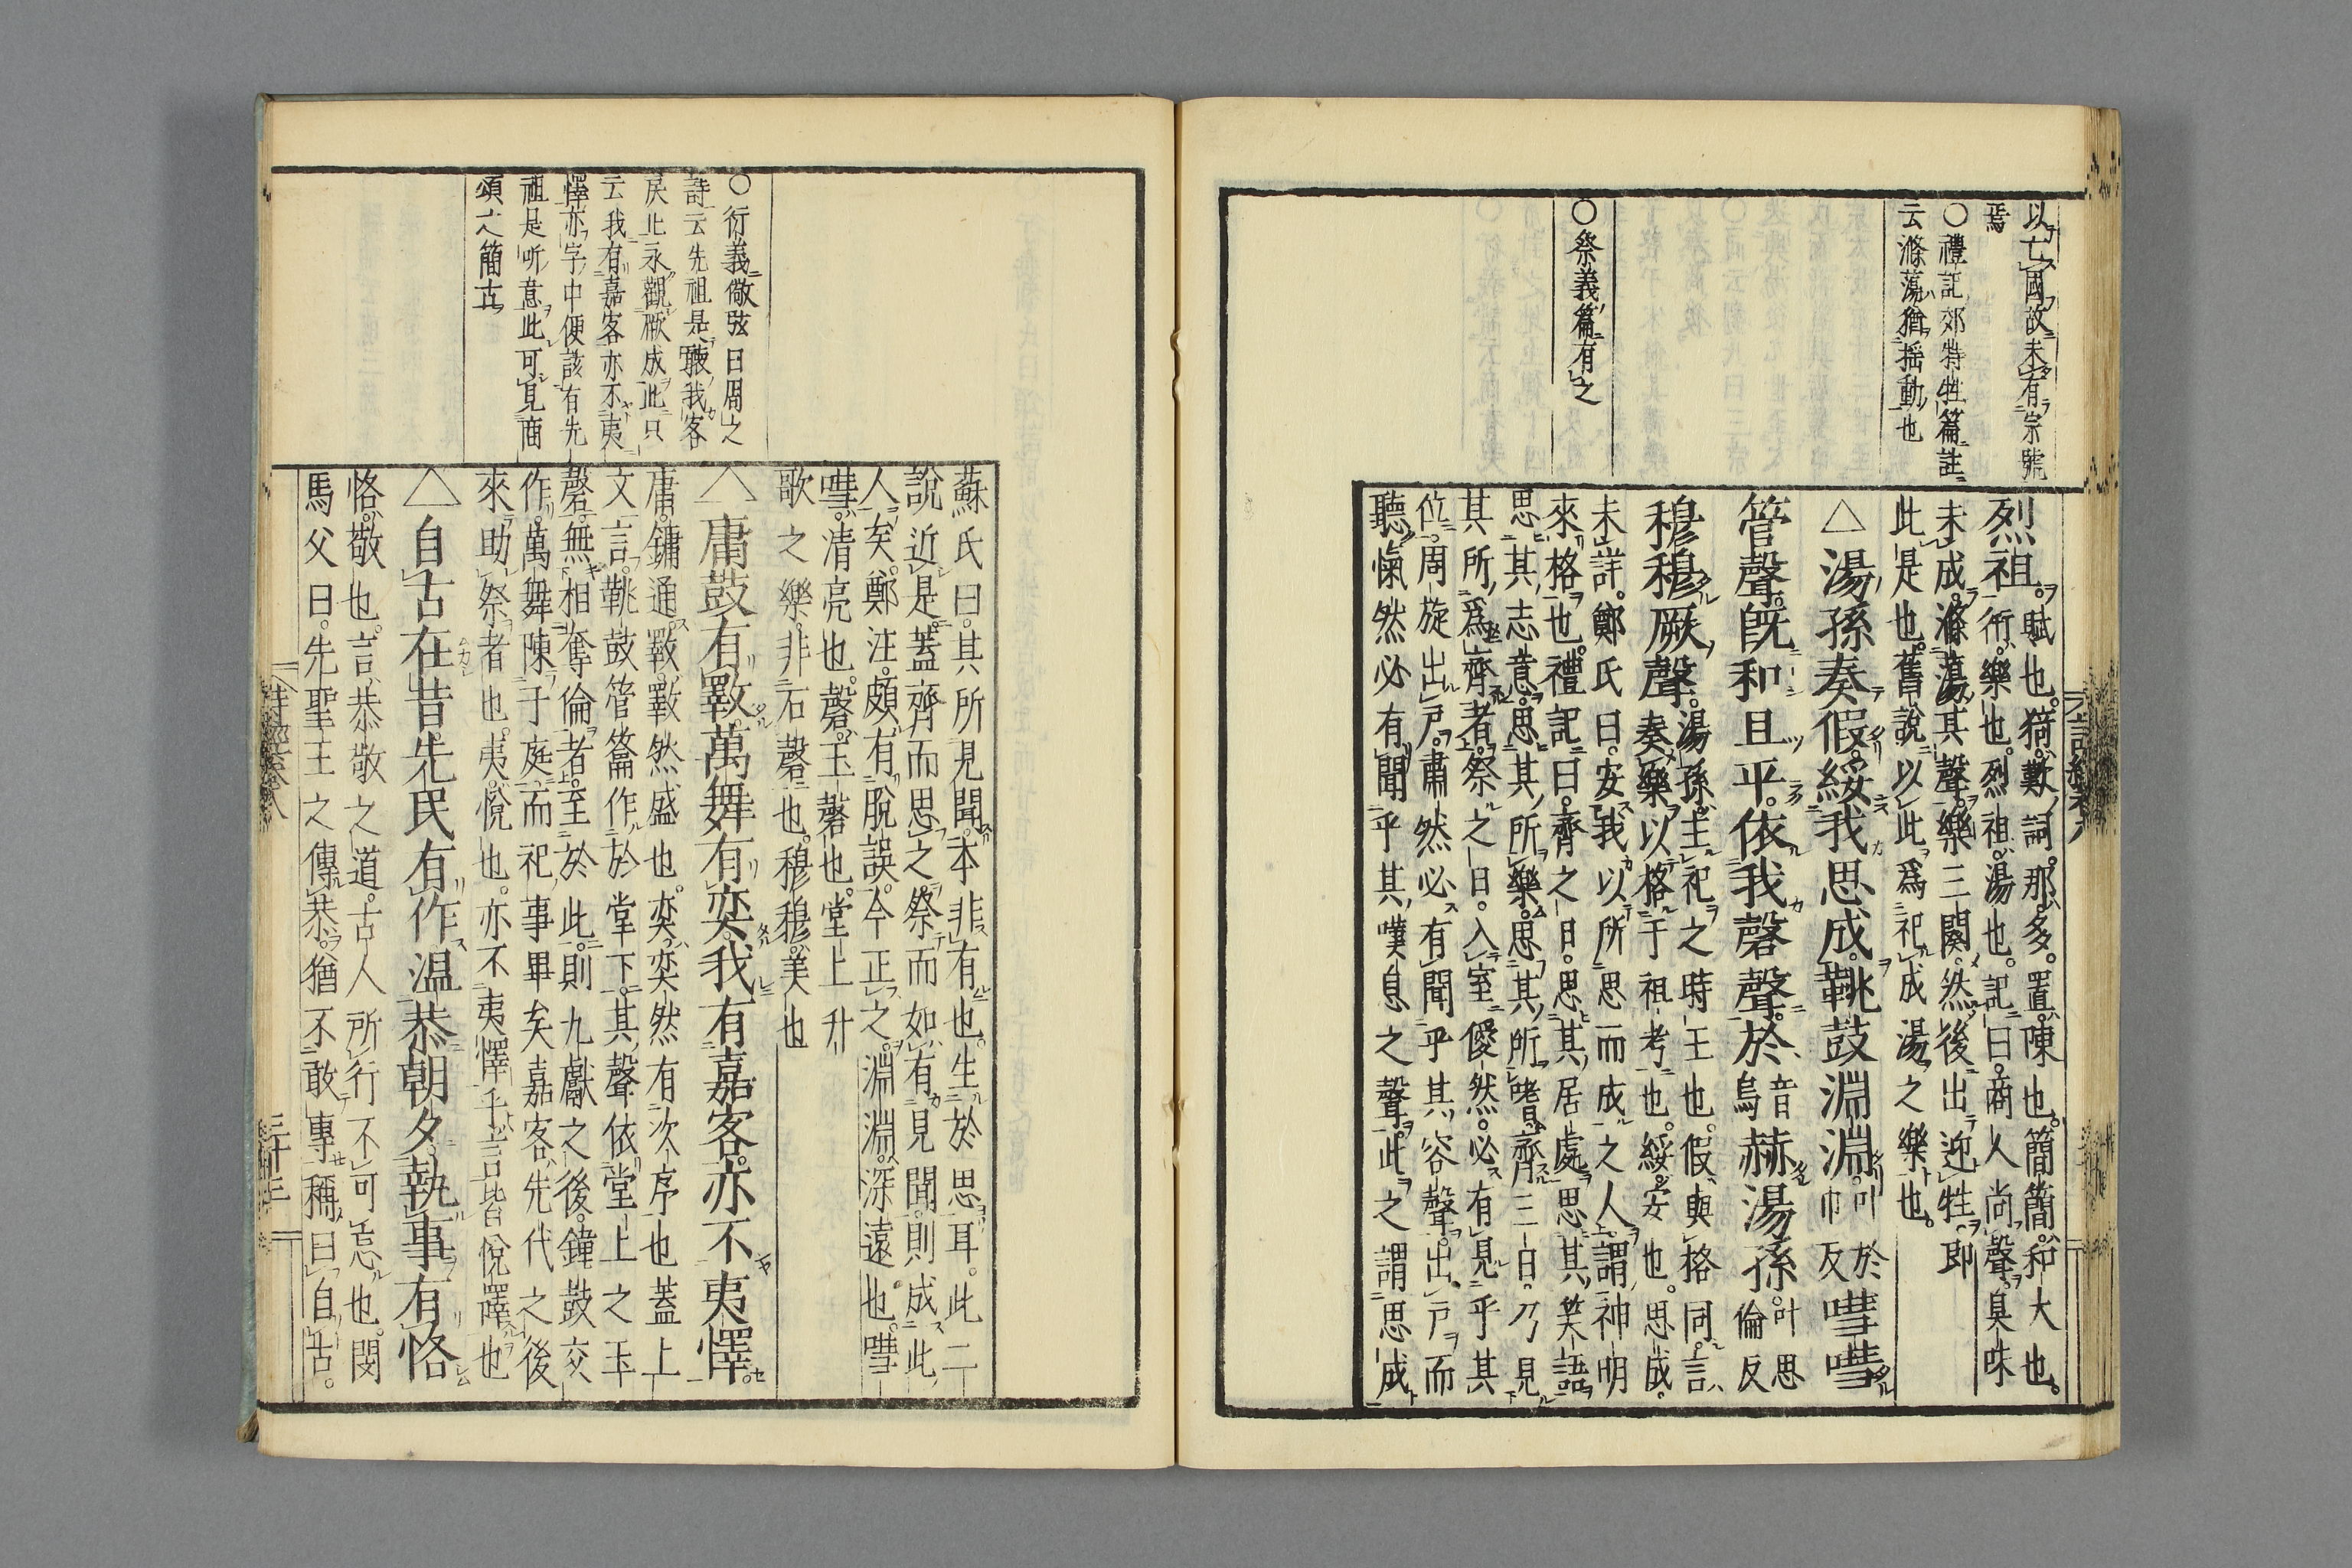 以亡國故未有宗號
焉
○禮記郊特牲篇註
云滌蕩猶揺動也
○祭義篇有之
烈祖。賦也。猗歟、詞。那、多。置、陳也。簡簡、和大也。
衎、樂也。烈祖、湯也。記曰。商人尚聲。臭味
未成。滌蕩其聲。樂三闋。然後出迎牲。即
此是也。舊說以此爲祀成湯之樂也。
△湯孫奏假。綏我思成。鞉鼓淵淵。叶於巾反嘒嘒
管聲。既和且平。依我磬聲。於音烏赫湯孫。叶思倫反
穆穆厥聲。湯孫、主祀之時王也。假、與格同。言
奏樂以格于祖考也。綏、安也。思成。
未詳。鄭氏曰。安我以所思而成之人。謂神明
來格也。禮記曰。齊之日。思其居處。思其笑語。
思其志意。思其所樂。思其所嗜。齊三日。乃見
其所爲齊者。祭之日。入室。僾然。必有見乎其
位。周旋出戶。肅然必有聞乎其容聲。出戶而
聽。愾然必有聞乎其嘆息之聲。此之謂思成
詩經卷八
○衍義儆弦曰周之
詩云先祖是聽我客
戾止永觀厥成此只
云我有嘉客亦不夷
懌亦字中便該有先
祖是听意此可見商
頌之簡古
蘇氏曰。其所見聞。本非有也。生於思耳。此二
說近是。蓋齊而思之。祭而如有見聞。則成此
人矣。鄭注。頗有脫誤。今正之。淵淵。深遠也。嘒
嘒。清亮也。磬。玉磬也。堂上升
歌之樂。非石磬也。穆穆。美也
△庸鼓有斁。萬舞有奕。我有嘉客。亦不夷懌。
庸。鏞通。斁。斁然盛也。奕。奕然有次序也。蓋上
文言。鞉鼓管籥作於堂下。其聲依堂上之玉
磬。無相奪倫者。至於此。則九獻之後。鐘鼓交
作。萬舞陳于庭。而祀事畢矣。嘉客、先代之後
來助祭者也。夷、悅也。亦不夷懌乎。言皆悅懌也
△自古在昔。先民有作。溫恭朝夕。執事有恪
恪。敬也。言恭敬之道。古人所行不可忘也。閔
馬父曰。先聖王之傳恭。猶不敢專。稱曰自古。
詩經卷八
三十三